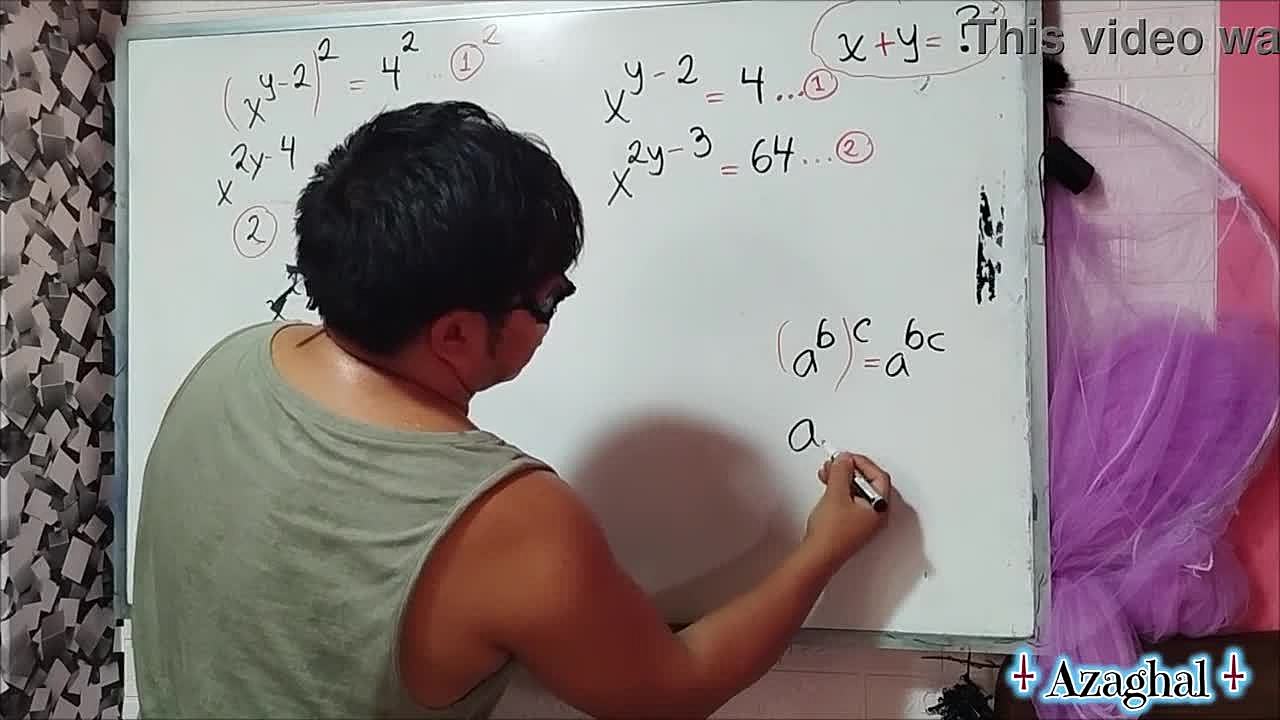 (x^{y-2})^2 = 4^2 .. ①^2
x^{2y-4}
②
x^{y-2} = 4 ... ①
x^{2y-3} = 64 ... ②
x + y = ?
(a^b)^c = a^{bc}
a
This video wa
Azaghal